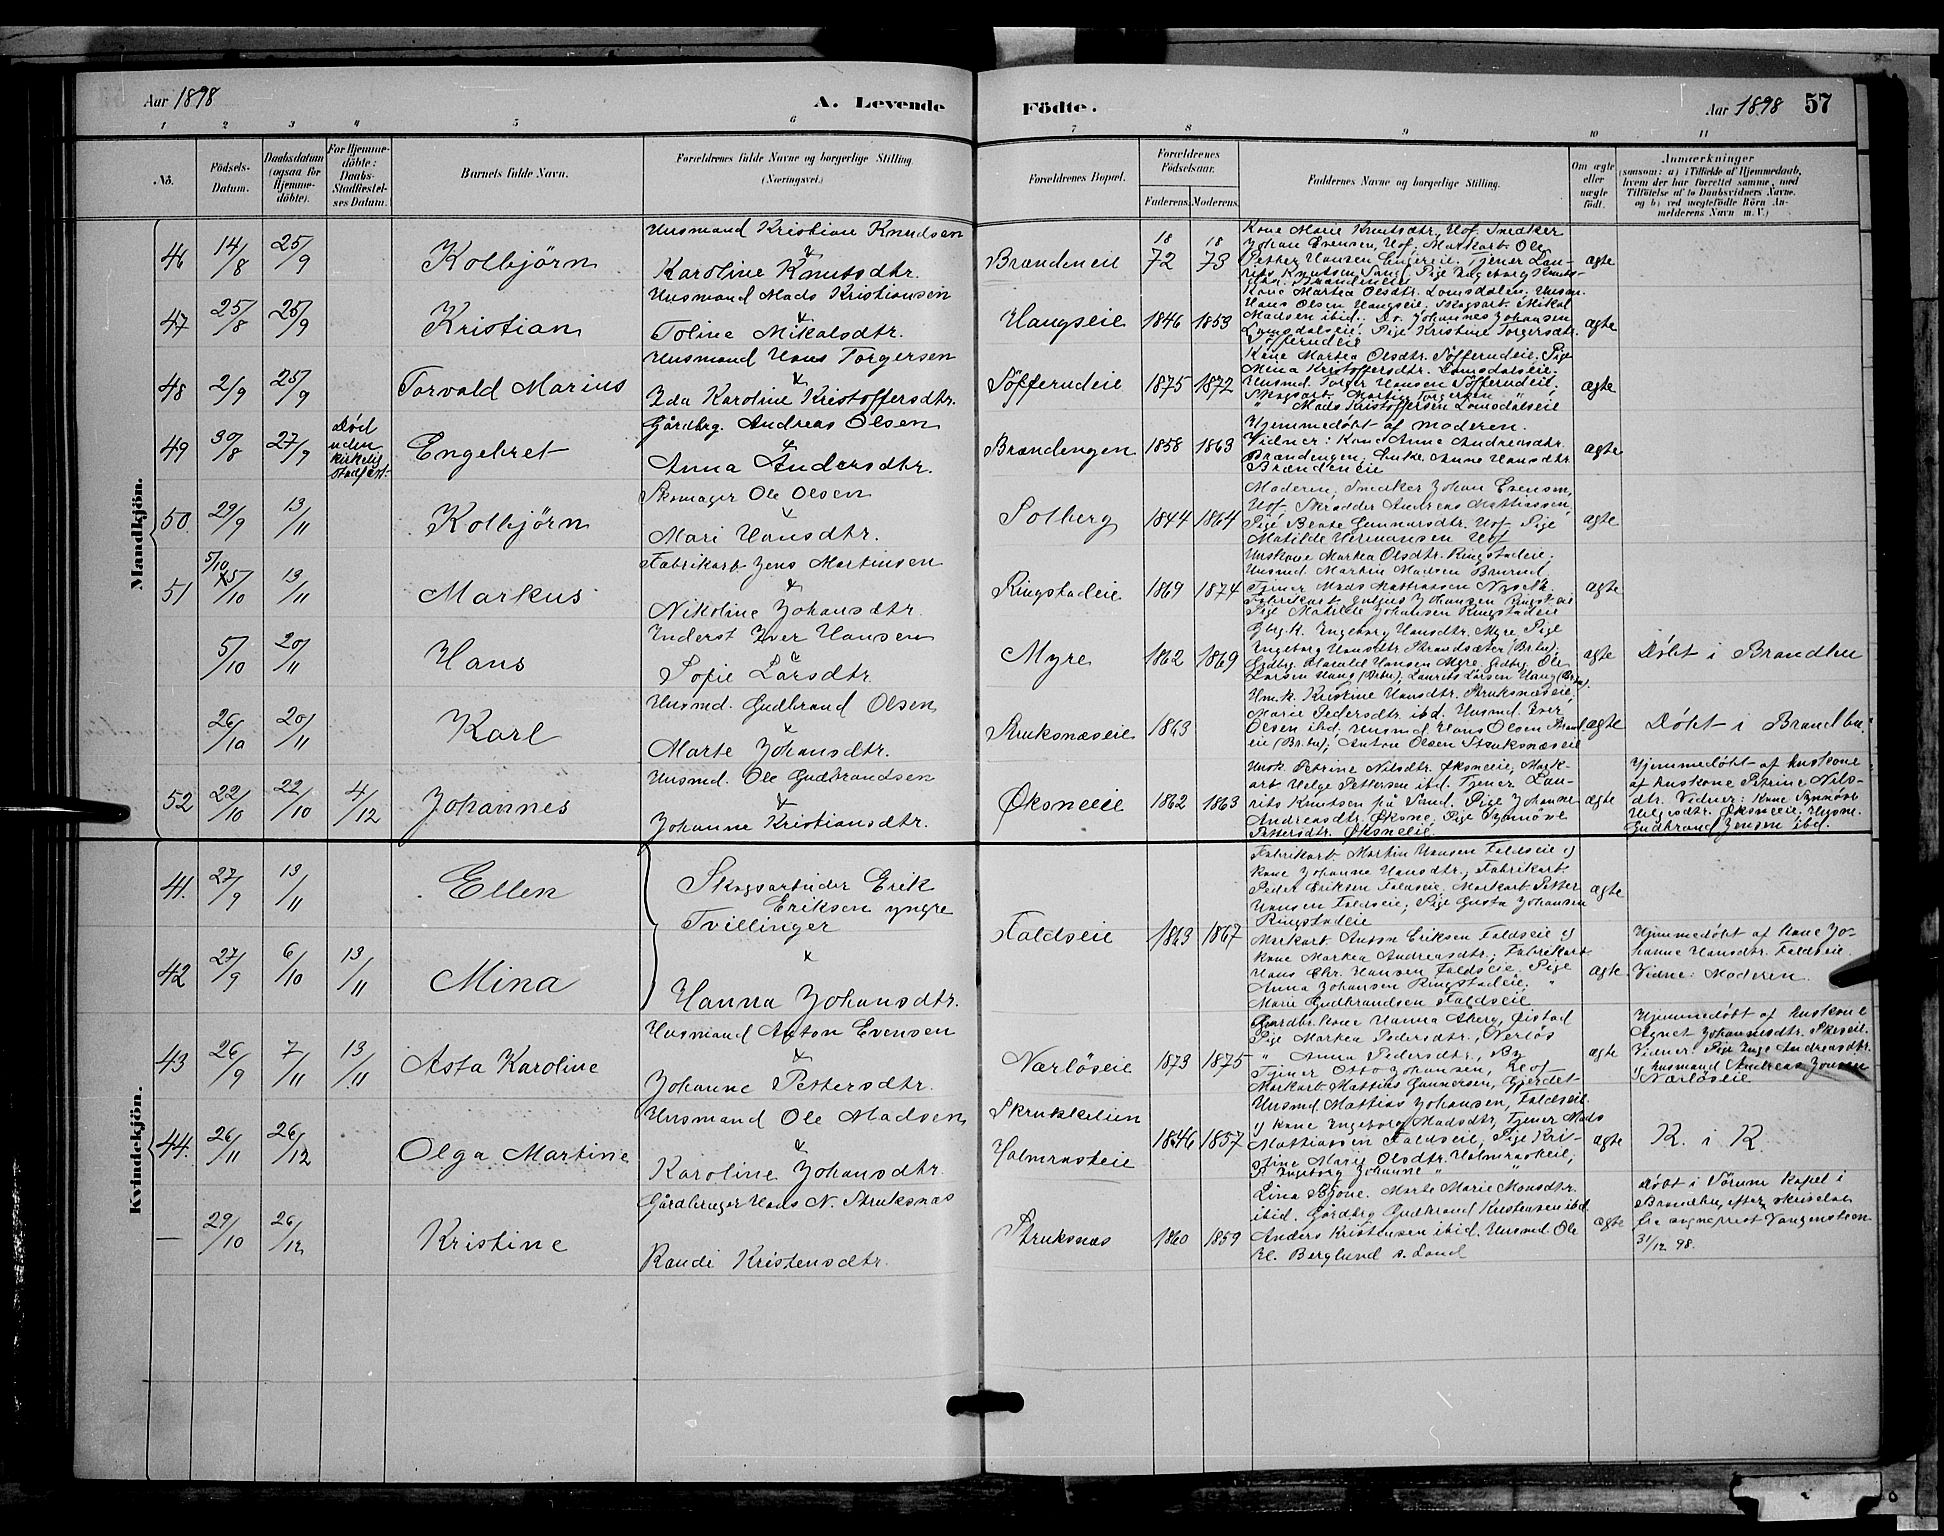 Aar 1898
A. Levende
Födte.
Aar 1898 57
1 2 3 4 5 6 7 8 9 10 11
No.
Födsels-Datum.
Daabsdatum (ogsaa for Hjemme-döbte).
For Hjemme-döbte: Daabs-Stadfæstel-ses Datum.
Barnets fulde Navn.
Forældrenes fulde Navne og borgerlige Stilling. (Næringsvei.)
Forældrenes Bopæl.
Forældrenes Födselsaar.
Faderens. Moderens.
Faddernes Navne og borgerlige Stilling.
Om ægte eller uægte födt.
Anmærkninger
(saasom: a) i Tilfælde af Hjemmedaab,
hvem der har forrettet samme, med
Tilföielse af to Daabsvidners Navne.
og b) ved uægtefödte Börn An-
melderens Navn m. V.)
Mandkjön.
46 14/8 25/9 Kolbjörn
Husmand Kristian Knudsen
&
Karoline Knutsdtr.
Brændeneie 1872 1873
Kone Marie Knutsdtr, Hof. Snedker
Johan Evensen, Hof. Markarb. Ole
Petter Hansen Engereie. Tjener Lau-
rits Knutsen Sand, Pige Ingeborg Knuts-
dtr. Brændeneie
ægte
47 25/8 25/9 Kristian
Husmand Mads Kristiansen
&
Toline Mikalsdtr.
Haugseie 1846 1853
Kone Martea Olsdtr. Lomsdalen, Husm.
Hans Olsen Haugseie, Skogsarb. Mikal
Madsen ibid. Do. Johannes Johansen
Lomsdalseie. Pige Kristine Torgersdtr.
Söfferudeie
ægte
48 2/9 25/9 Torvald Marius
Husmand Hans Torgersen
&
Ida Karoline Kristoffersdtr.
Söfferudeie 1875 1872
Kone Martea Olsdtr. Söfferudeie. Pige
Mina Kristoffersdtr. Lomsdalseie.
Husmd. Torger Hansen Söfferudeie.
Skogsarb. Martin Torgersen "
" Mads Kristoffersen Lomsdalseie
ægte
49 30/8 27/9
Död
uden
kirkelig
stadfæst.
Engebret
Gårdbrg. Andreas Olsen
&
Anna Andersdtr.
Brændengen 1858 1863
Hjemmedöbt af moderen.
Vidner: Kone Anne Andreasdtr.
Brændengen, Enke Anne Hansdtr
Brændeneie
ægte
50 29/9 13/11 Kolbjörn
Skomager Ole Olsen
&
Mari Hansdtr.
Solberg 1844 1864
Moderen, Snedker Johan Evensen,
Hof, Skrædder Andreas Mattiassen,
Pige Beate Gunnarsdtr. Hof. Pige
Matilde Hermansen Hof
ægte
51 5/10 5/10 13/11 Markus
Fabrikarb. Jens Martinsen
&
Nikoline Johansdtr.
Ringstadeie 1869 1874
Huskone Martea Olsdtr. Ringstadeie.
Husmd. Martin Madsen
Tjener Mads Mattiassen
Fabrikarb. Johansen Ringst.eie
Pige Matilde Johansen Ringstadeie
ægte
5/10 20/11 Hans
Inderst Iver Hansen
&
Sofie Larsdtr.
Myre 1862 1869
Gbg.k. Ingeborg Hansdtr. Myre, Pige
Ingeborg Hansdtr Strandsæter (Br.bu),
Gdbrg. Harald Hansen Myre, Gdbrg. Ole
Larsen Haug (Br.bu), Laurits Larsen Haug (Br.bu).
ægte
Döbt i Brandbu
26/10 20/11 Karl
Husmd. Gudbrand Olsen
&
Marte Johansdtr.
Struksnæseie 1863
Hm.k. Kristine Hansdtr. Struksnæseie,
Marie Pedersdtr ibd. Husmd. Iver
Olsen ibd, Husmd Hans Olsen
eie (Br.bu), Anton Olsen Struksnæseie
ægte
Döbt i Brandbu.
52 22/10 22/10 4/12 Johannes
Husmd. Ole Gudbrandsen
&
Johanne Kristiansdtr.
Øksneeie 1862 1863
Husk. Petrine Nilsdtr. Øksneeie, Mark-
arb Helge Pettersen ibd. Tjener Lau-
rits Knutsen på Sand. Pige Johanne
Andreasdtr. Øksne, Pige Synnöve
Pettersdtr. Øksneeie
ægte
Hjemmedöbt af huskone
af huskone Petrine Nils-
dtr. Vidner: Kone Synnöve
Helgesdtr. Øksneeie, Husm.
Gudbrand Jensen ibd.
Kvindekjön.
41. 27/9 13/11 Ellen
Skogsarbeider Erik
Eriksen yngre
Tvillinger
&
Hanna Johansdtr.
Faldseie 1863 1867
Fabrikarb. Martin Hansen Faldseie og
kone Johanna Hansdtr., Fabrikarb.
Peder Eriksen Faldseie, Markarb. Petter
Hansen Faldseie, Pige Gusta Johansen
Ringstadeie
ægte
42 27/9 6/10 13/11 Mina
Markarb. Anton Eriksen Faldseie og
kone Martea Andreasdtr, Fabrikarb
Hans Chr. Hansen Faldseie. Pige
Anna Johansen Ringstadeie, "
Marie Gudbrandsen Faldseie
ægte
Hjemmedöbt af kone Jo-
hanne Hansdtr. Faldseie.
Vidne: Moderen.
43 26/9 7/11 13/11 Asta Karoline
Husmand Anton Evensen
&
Johanne Pettersdtr.
Nærlöseie 1873 1875
Gårdbr.kone Hanna Åberg, Öistad
Pige Martea Pedersdtr., Nerlös
" Anna Pedersdtr., By
Tjener Otto Johansen, Hof
Markarb. Mattias Gunnersen, Gjerdet
ægte
Hjemmedöbt af huskone
Agnet Johannesdtr. Skeseie.
Vidner: Pige Inge Andreasdtr.
og husmand Andreas Jonsen
Nærlöseie
44. 26/11 26/12 Olga Martine
Husmand Ole Madsen
&
Karoline Johansdtr.
Skrukkelien
Holmraseie 1846 1857
Husmd Mattias Johansen, Faldseie
og kone Ingeborg Madsdtr, Tjener Mads
Mattiassen Faldseie, Pige Kri-
stine Marie Olsdtr. Holmraseie,
P. Ingeborg Johanne " "
ægte
K. i K.
— 29/10 26/12 Kristine
Gårdbruger Hans N. Struksnæs
Randi Kristensdtr.
Struksnæs 1860 1859
Lina Bjone. Marte Marie Monsdtr.
ibid. Gårdbrg Gudbrand Kristensen ibd
Anders Kristensen ibid. Husmd. Ole
H. Berglund s. Land
ægte
Döbt i Sörum kapel i
Brandbu, efter skrivelse
fra sogneprest Vangensteen
31/12 98.